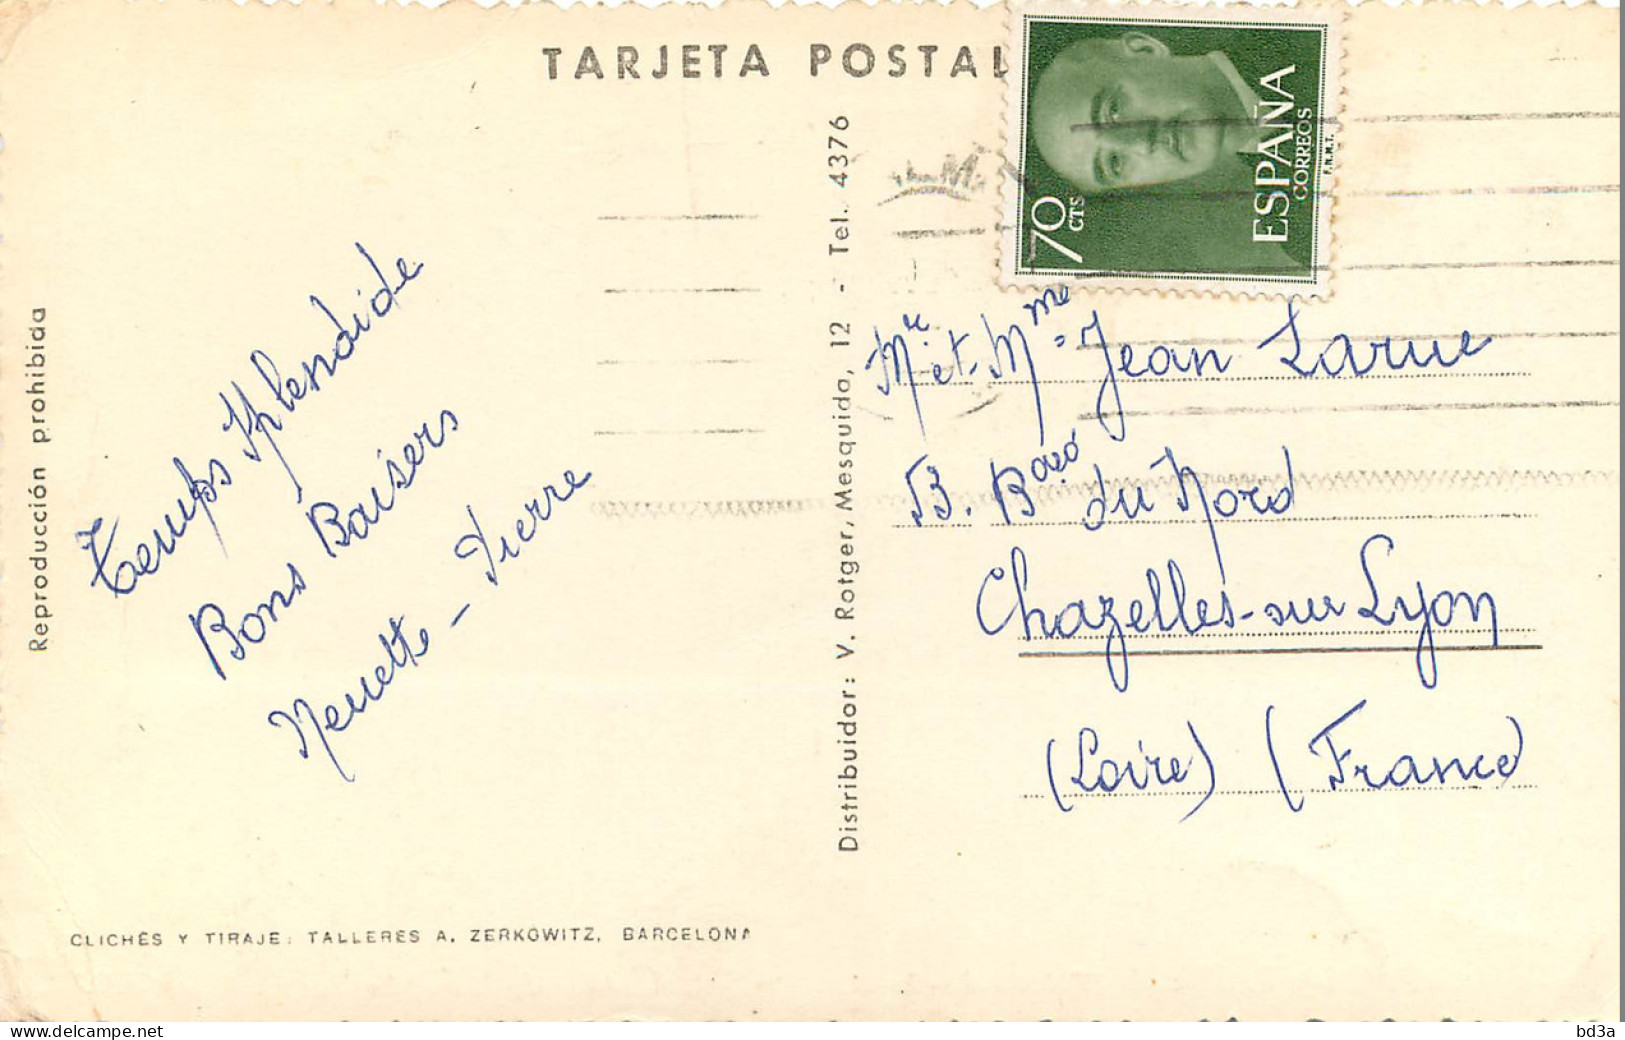 TARJETA POSTAL
70 CTS
ESPAÑA
CORREOS
F.N.M.T.
Reproducción prohibida
Temps Splendide
Bons Baisers
Nenette - Pierre
Distribuidor: V. Rotger, Mesquida, 12 - Tel. 4376
Mr et Mme Jean Larue
B. Bard du Nord
Chazelles-sur Lyon
(Loire) (France)
CLICHÉS Y TIRAJE: TALLERES A. ZERKOWITZ. BARCELONA
bd3a